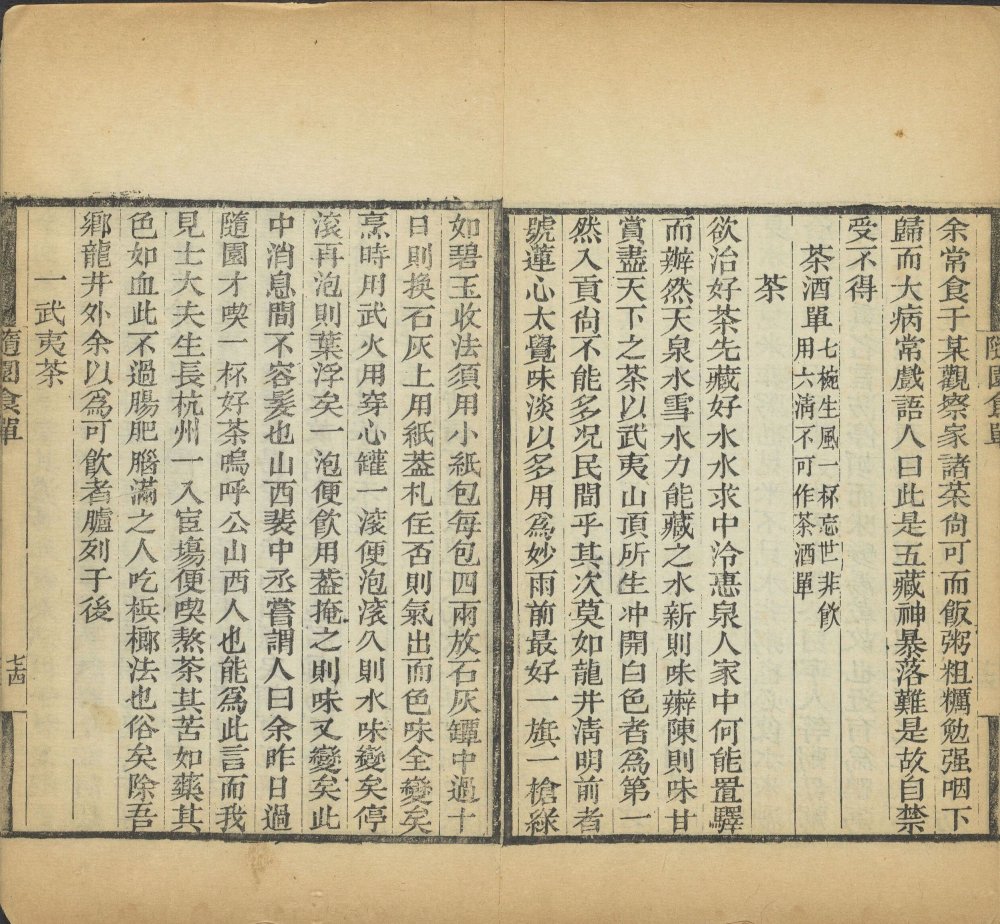 隨園食單
余常食于某觀察家諸菜尙可而飯粥粗糲勉强咽下
歸而大病常戲語人曰此是五藏神暴落難是故自禁
受不得
茶酒單七椀生風一杯忘世非飮
用六淸不可作茶酒單
茶
欲治好茶先藏好水水求中泠惠泉人家中何能置驛
而辦然天泉水雪水力能藏之水新則味辣陳則味甘
嘗盡天下之茶以武夷山頂所生冲開白色者爲第一
然入貢尙不能多况民間乎其次莫如龍井淸明前者
號蓮心太覺味淡以多用爲妙雨前最好一旗一槍綠
如碧玉收法須用小紙包每包四兩放石灰罈中過十
日則換石灰上用紙葢札住否則氣出而色味全變矣
烹時用武火用穿心罐一滚便泡滚久則水味變矣停
滚再泡則葉浮矣一泡便飮用葢掩之則味又變矣此
中消息間不容髮也山西裴中丞嘗謂人曰余昨日過
隨園才喫一杯好茶嗚呼公山西人也能爲此言而我
見士大夫生長杭州一入宦塲便喫熬茶其苦如藥其
色如血此不過腸肥腦滿之人吃梹榔法也俗矣除吾
鄕龍井外余以爲可飮者臚列于後
一武夷茶
隨園食單
七四